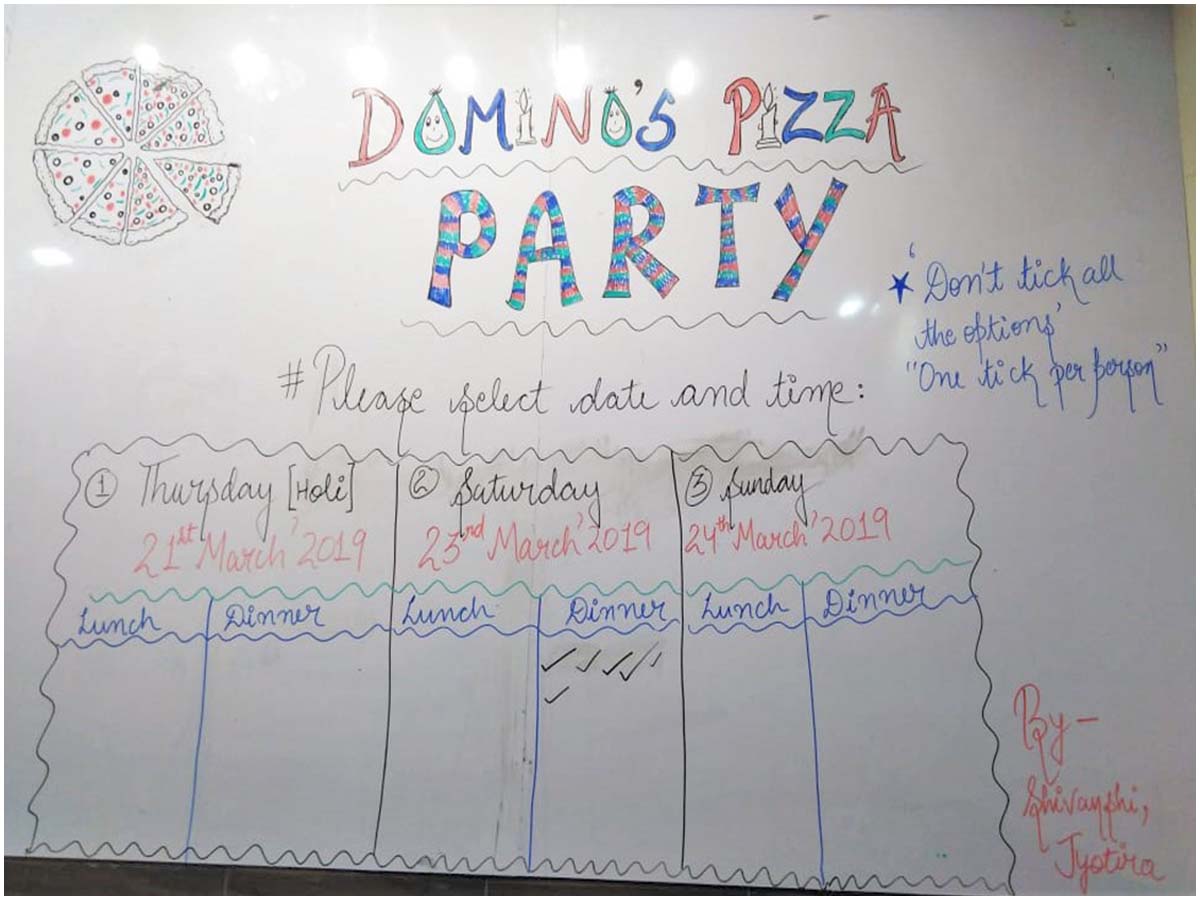 DOMINO'S PIZZA
PARTY
★ 'Don't tick all
the options'
"One tick per person"
#Please select date and time:
① Thursday [Holi]
21st March'2019
② Saturday
23rd March'2019
③ Sunday
24th March'2019
Lunch
Dinner
Lunch
Dinner
Lunch
Dinner
✓ ✓ ✓ ✓ ✓
✓
By-
Shivanshi,
Jyotira